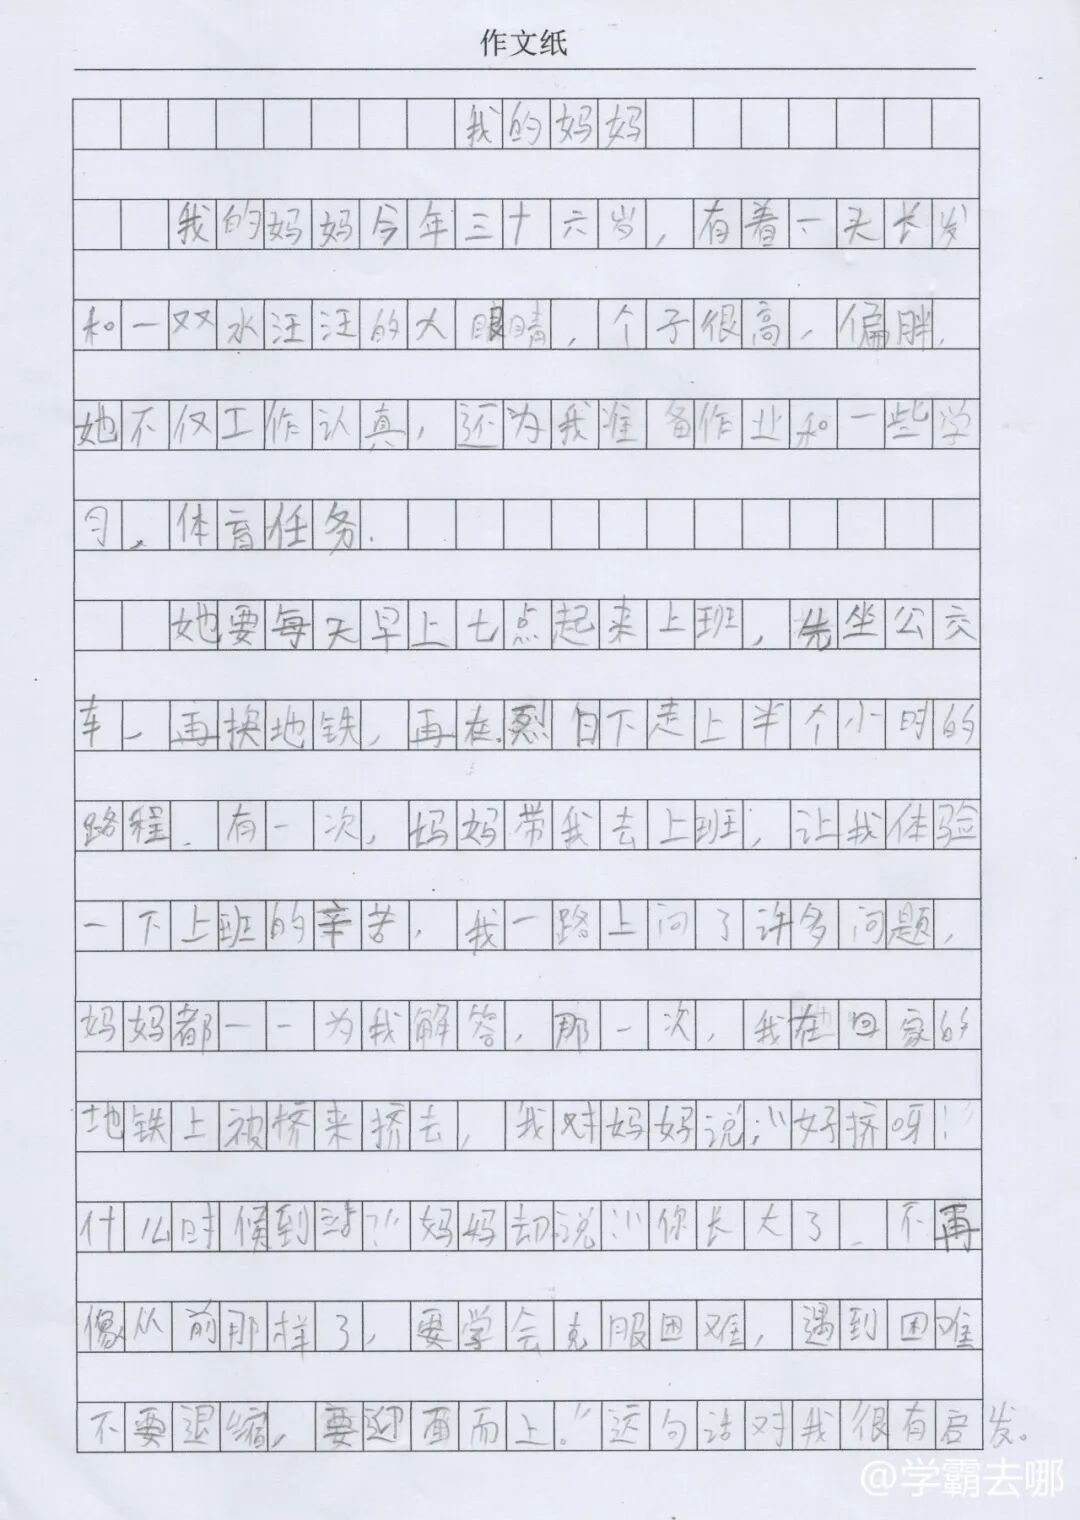 作文纸
我的妈妈
我的妈妈今年三十六岁，有着一头长发
和一双水汪汪的大眼睛，个子很高，偏胖，
她不仅工作认真，还为我准备作业和一些学
习、体育任务.
她要每天早上七点起来上班，先坐公交
车、再换地铁，再在烈日下走上半个小时的
路程.有一次，妈妈带我去上班，让我体验
一下上班的辛苦，我一路上问了许多问题，
妈妈都一一为我解答，那一次，我在回家的
地铁上被挤来挤去，我对妈妈说：“好挤呀！
什么时候到站？”妈妈却说：“你长大了、不再
像从前那样了，要学会克服困难，遇到困难
不要退缩，要迎面而上。”这句话对我很有启发。
@学霸去哪